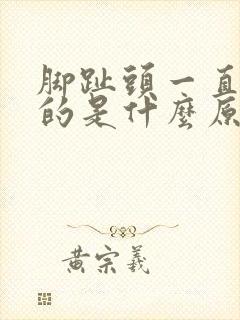 腳趾頭一直
的是什麼原
黃宗羲